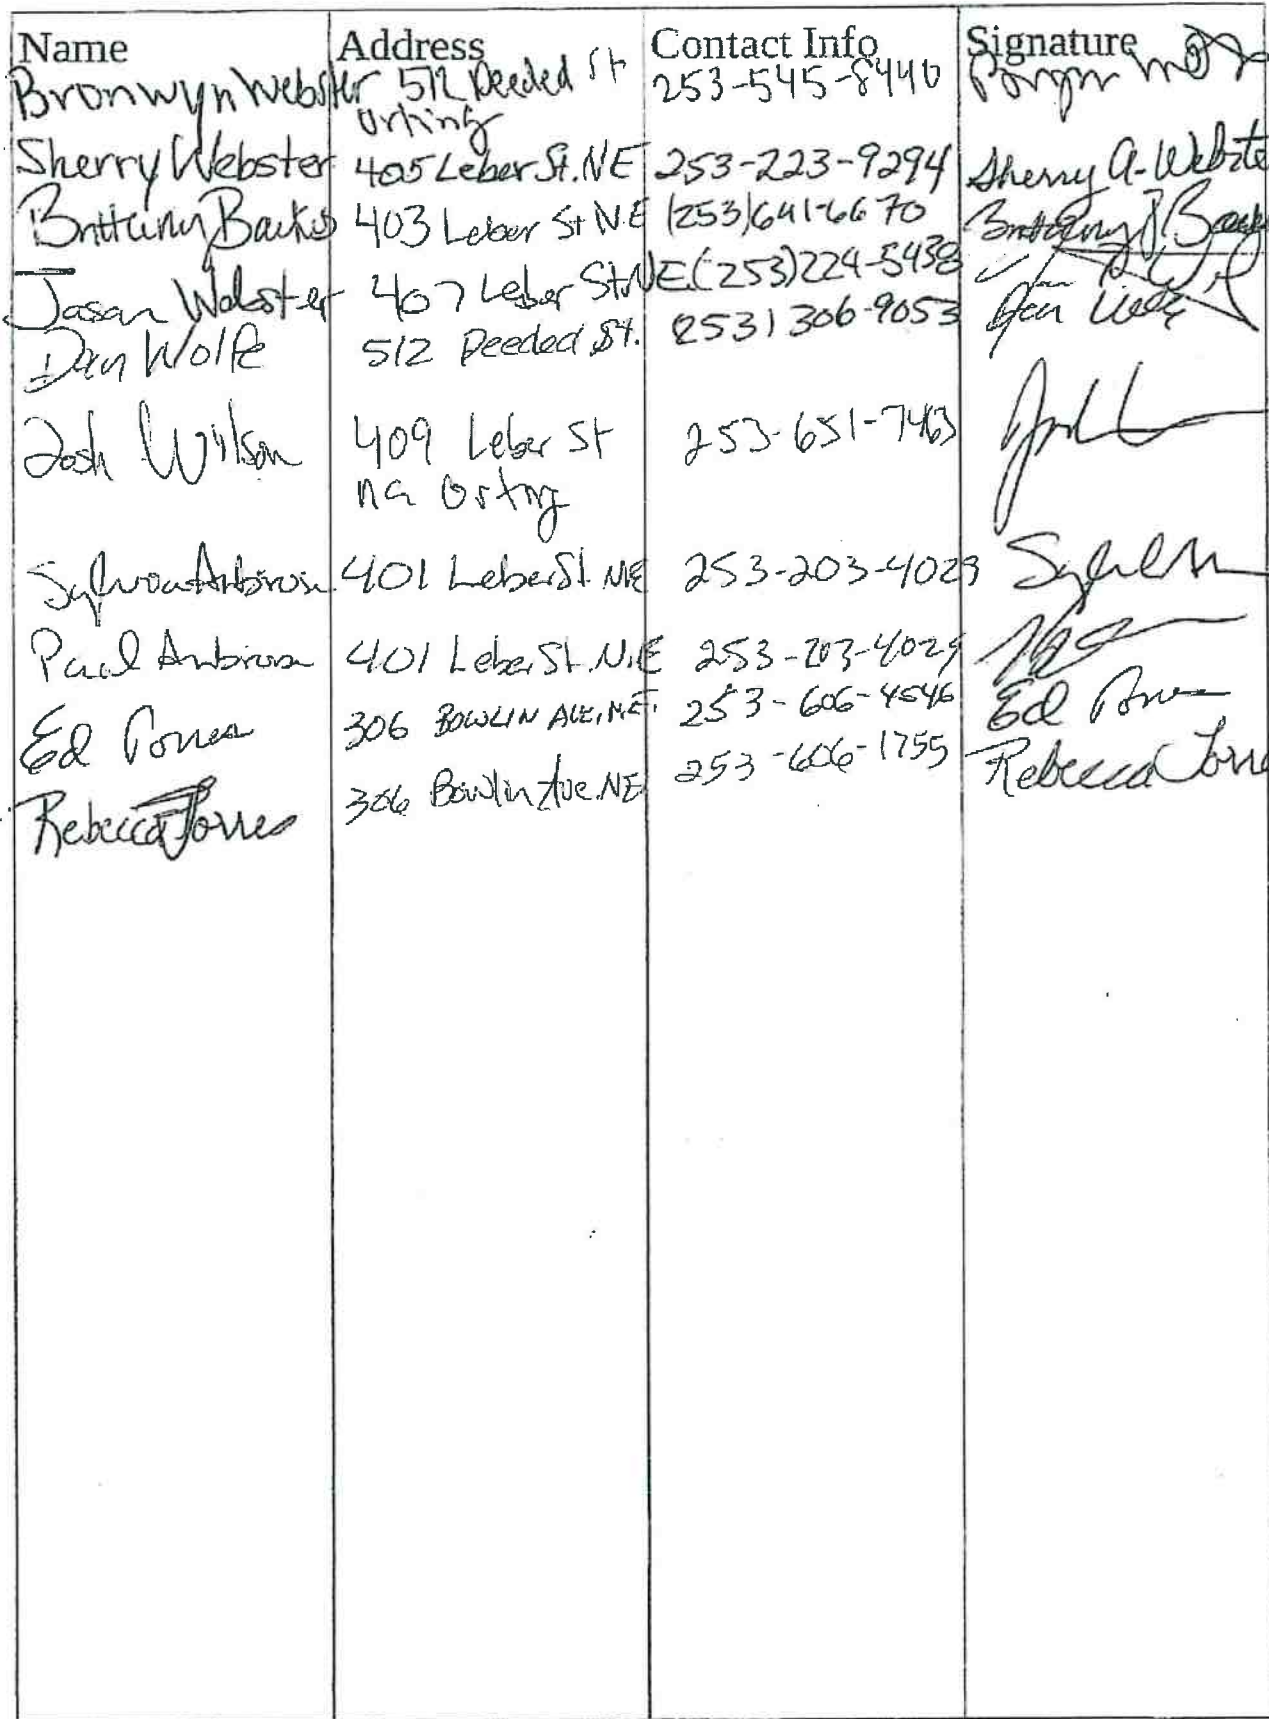 Name Address Contact Info Signature
Bronwyn Webster 512 Deeded St 253-545-8440
Orting
Sherry Webster 405 Leber St. NE 253-223-9294 Sherry A. Webste
Brittany Backus 403 Leber St N.E (253)641-6670 Brittany
Jason Webster 407 Leber St. NE. (253)224-5438
Dan Wolfe 512 Deeded St. (253) 306-9053
Josh Wilson 409 Leber St 253-651-7463
Orting
401 Leber St NE 253-203-4029
Paul 401 Leber St. N.E 253-203-4029
Ed Torres 306 BOWLIN AVE, N.E. 253-606-4546 Ed Torres
Rebecca Torres 306 Bowlin Ave. NE 253-606-1755 Rebecca Torre